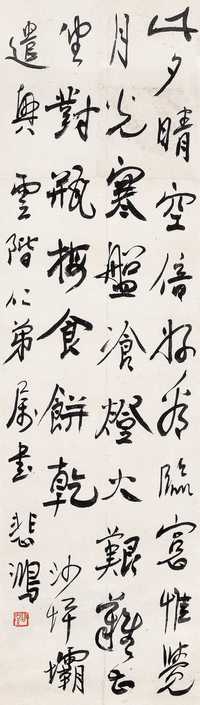 此夕晴空倍好看臨窗惟覺
月光寒盤飡燈火艱難
坐對瓶梅食餅乾 沙坪壩
遣興 雲階仁弟屬書 悲鴻